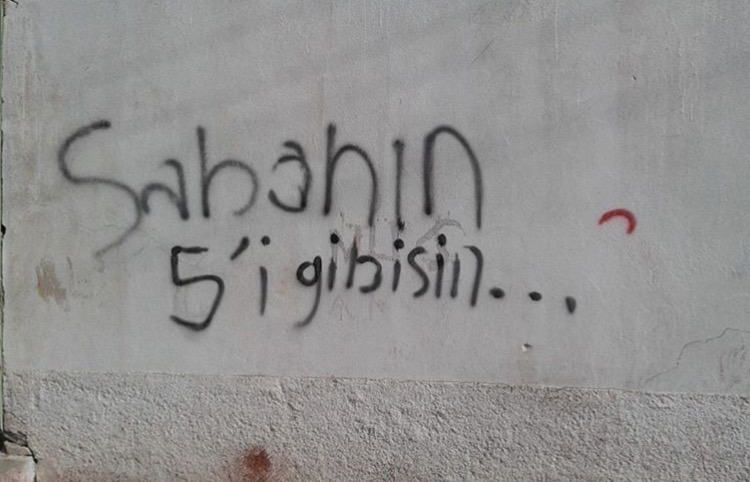 Sabahın
5'i gibisin...